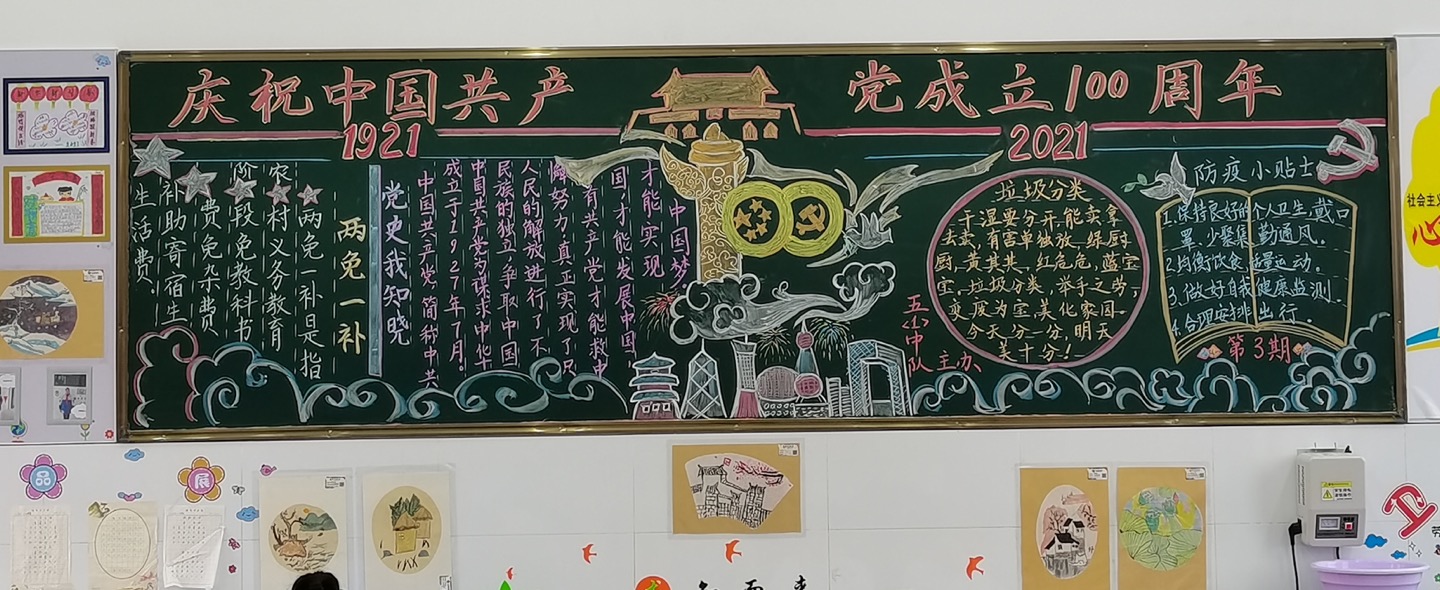 庆祝中国共产党成立100周年
1921
2021
两免一补
两免一补是指
农村义务教育
阶段免教科书
费免杂费
补助寄宿生
生活费
党史我知晓
中国共产党,简称中共
成立于1927年7月。
中国共产党为谋求中华
民族的独立,争取中国
人民的解放进行了不
懈努力,真正实现了只
有共产党才能救中
国,才能发展中国,
才能实现
中国梦。
垃圾分类
干湿要分开,能卖拿
去卖,有害单独放。绿厨
厨,黄其其,红危危,蓝宝
宝,垃圾分类,举手之劳,
变废为宝,美化家园。
今天分一分,明天
美十分!
五小中
队主办
防疫小贴士
1.保持良好的个人卫生,戴口
罩,少聚集,勤通风。
2.均衡饮食,适量运动。
3.做好自我健康监测.
4.合理安排出行。
第3期
社会主义
心
品
展
卫